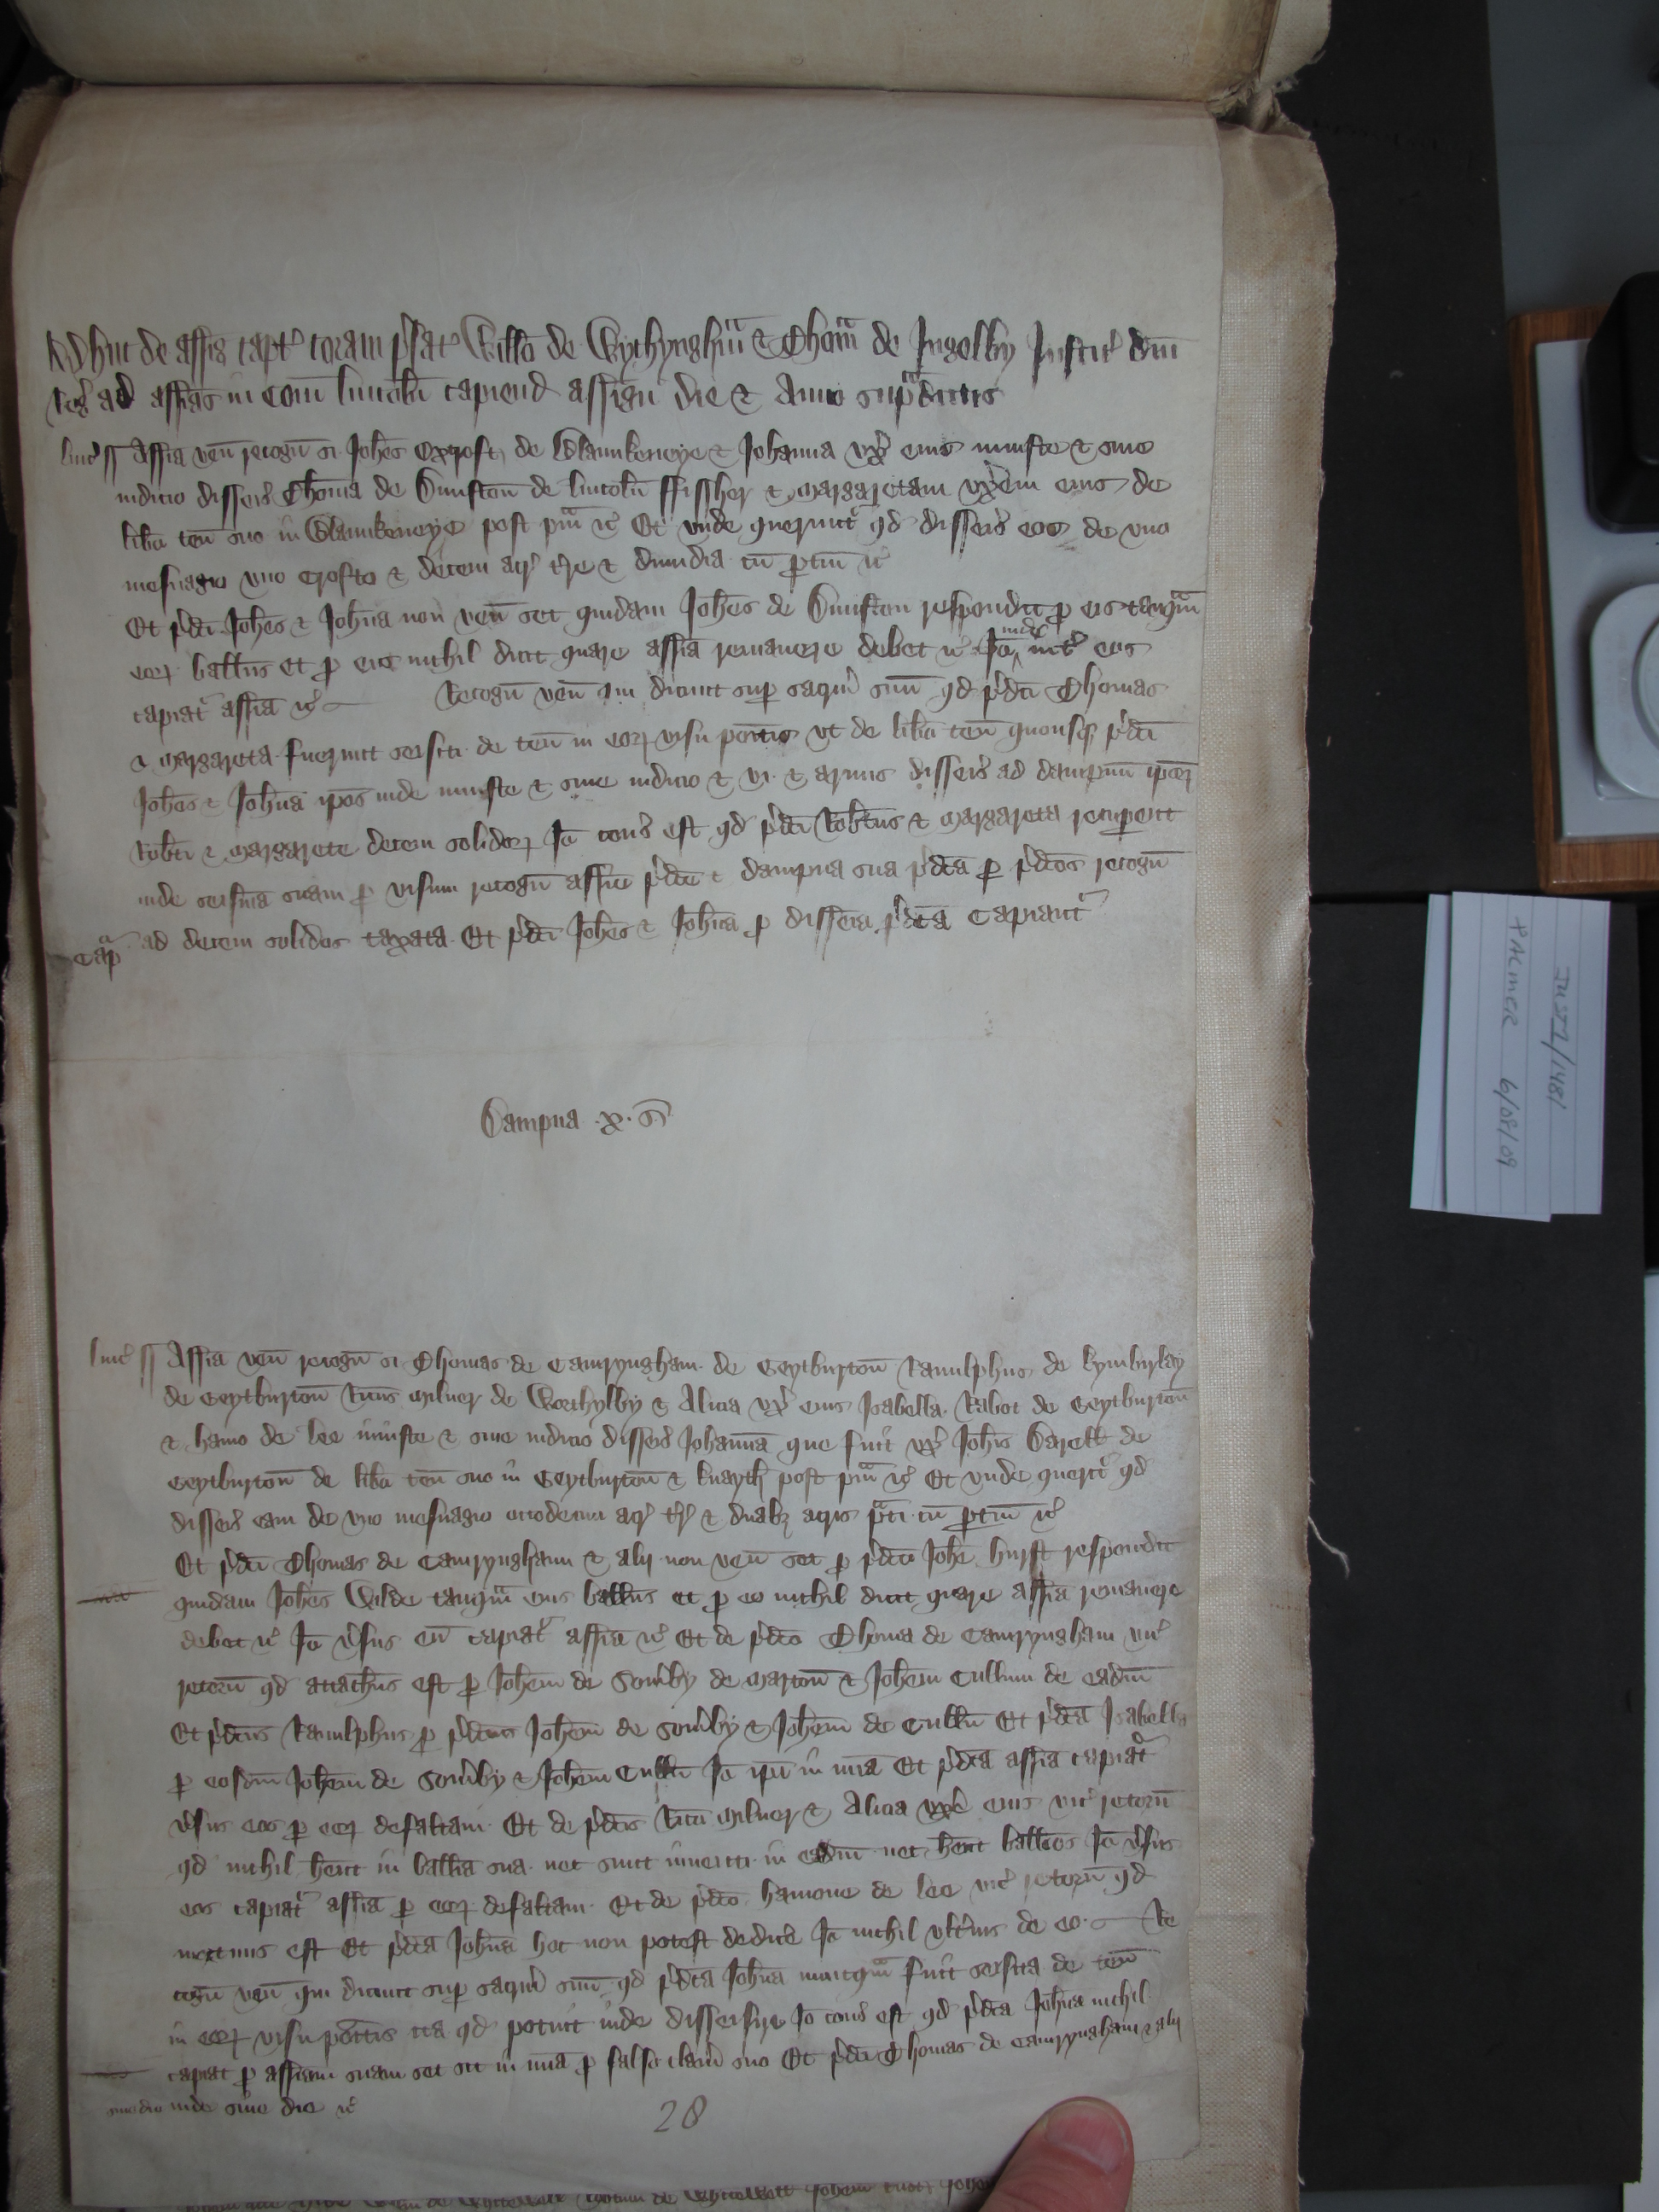 Adhuc de assis capt coram prefat Willo de Wychynghm & Thom de Ingelby Justic dni
Reg ad assias in Com Lincoln capiend assign die & Anno supradictis
Linc ss Assia ven recogn si Johes Oxpost de Blaunkeneye & Johanna vxr eius iniuste & sine
iudicio disseis Thomā de Dunston de Lincoln ffissher & Margaretam vxem eius de
libo ten suo in Blaunkeneye post pm &c Et vnde querunt qd disseis eos de vno
mesuagio vno crofto & decem acr tre & dimidia cu ptin &c
Et pdci Johes & Johna non ven set quidam Johes de Dunston respondit p eis tanqm
eor ballius et p eis nichil dicit quare assia remanere debet &c Io inde int eos
capiat assia &c Recogn ven qui dicunt sup sacrm suu qd pdci Thomas
& Margareta fuerunt seisiti de ten in eor visu positis vt de libo ten quousq pdci
Johes & Johna ipos inde iniuste & sine iudicio & vi & armis disseis ad dampnu ipor
Robti & Margarete decem solidor Io cons est qd pdci Robtus & Margareta recuperent
inde seisina suam p visum recogn assie pdce & dampna sua pdca p pdcos recogn
Cap ad decem solidos taxata Et pdci Johes & Johna p disseia pdca Capiant
Dampna .x. s
Linc ss Assia ven recogn si Thomas de Camryngham de Geytburton Ranulphus de Kymbirlay
de Geytburton Ricus Milner de Worthylby & Alicia vx eius Isabella Rabot de Geytburton
& Hamo de Lee iniuste & sine iudicio disseis Johannā que fuit vx Johis Darell de
Geytburton de libo ten suo in Geytburton & Knayth post pm &c Et vnde querit qd
disseis eam de vno mesuagio octodecim acr tre & duabz acris pti cu ptin &c
Et pdci Thomas de Camryngham & alij non ven set p pdco Johe Hurst respondit
quidam Johes Wilde tanqm eius ballius et p eo nichil dicit quare assia remanere
debet &c Io vsus eu capiat assia &c Et de pdco Thoma de Camryngham vic
retorn qd attachus est p Johem de Somby de Marton & Johem Cullum de eadm
Et pdcus Ranulphus p pdcos Johem de Somby & Johem de Cullu Et pdca Isabella
p eosdm Johem de Somby & Johem Cullu Io ipi in mia Et pdca assia capiat
vsus eos p eor defaltam Et de pdcis Rico Milner & Alicia vxe eius vic retorn
qd nichil hent in ballia sua nec sunt inuenti in eadm nec hent balleos Io vsus
eos capiat assia p eor defaltam Et de pdco Hamone de Lee vic retorn qd
mortuus est Et pdca Johna hoc non potest dedicere Io nichil vltius de eo Re
cogn ven qui dicunt sup sacrm suu qd pdca Johna nunqm fuit seisita de ten
in eor visu positis ita qd potuit inde disseisire Io cons est qd pdca Johna nichil
capiat p assiam suam set sit in mia p falso clam suo Et pdci Thomas de Camryngham & alij
sine die inde sine die &c
28
JUST1/1481
PALMER 6/08/09